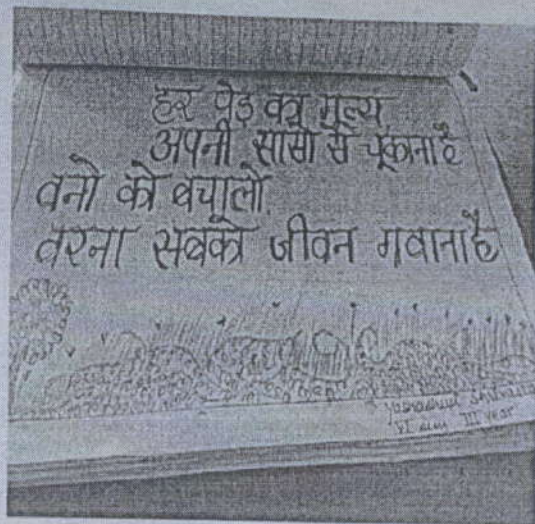 हर पेड़ का मूल्य
अपनी सासो से चूकाना है
वनो को बचालो
वरना सबको जीवन गवाना है
VI sem III year